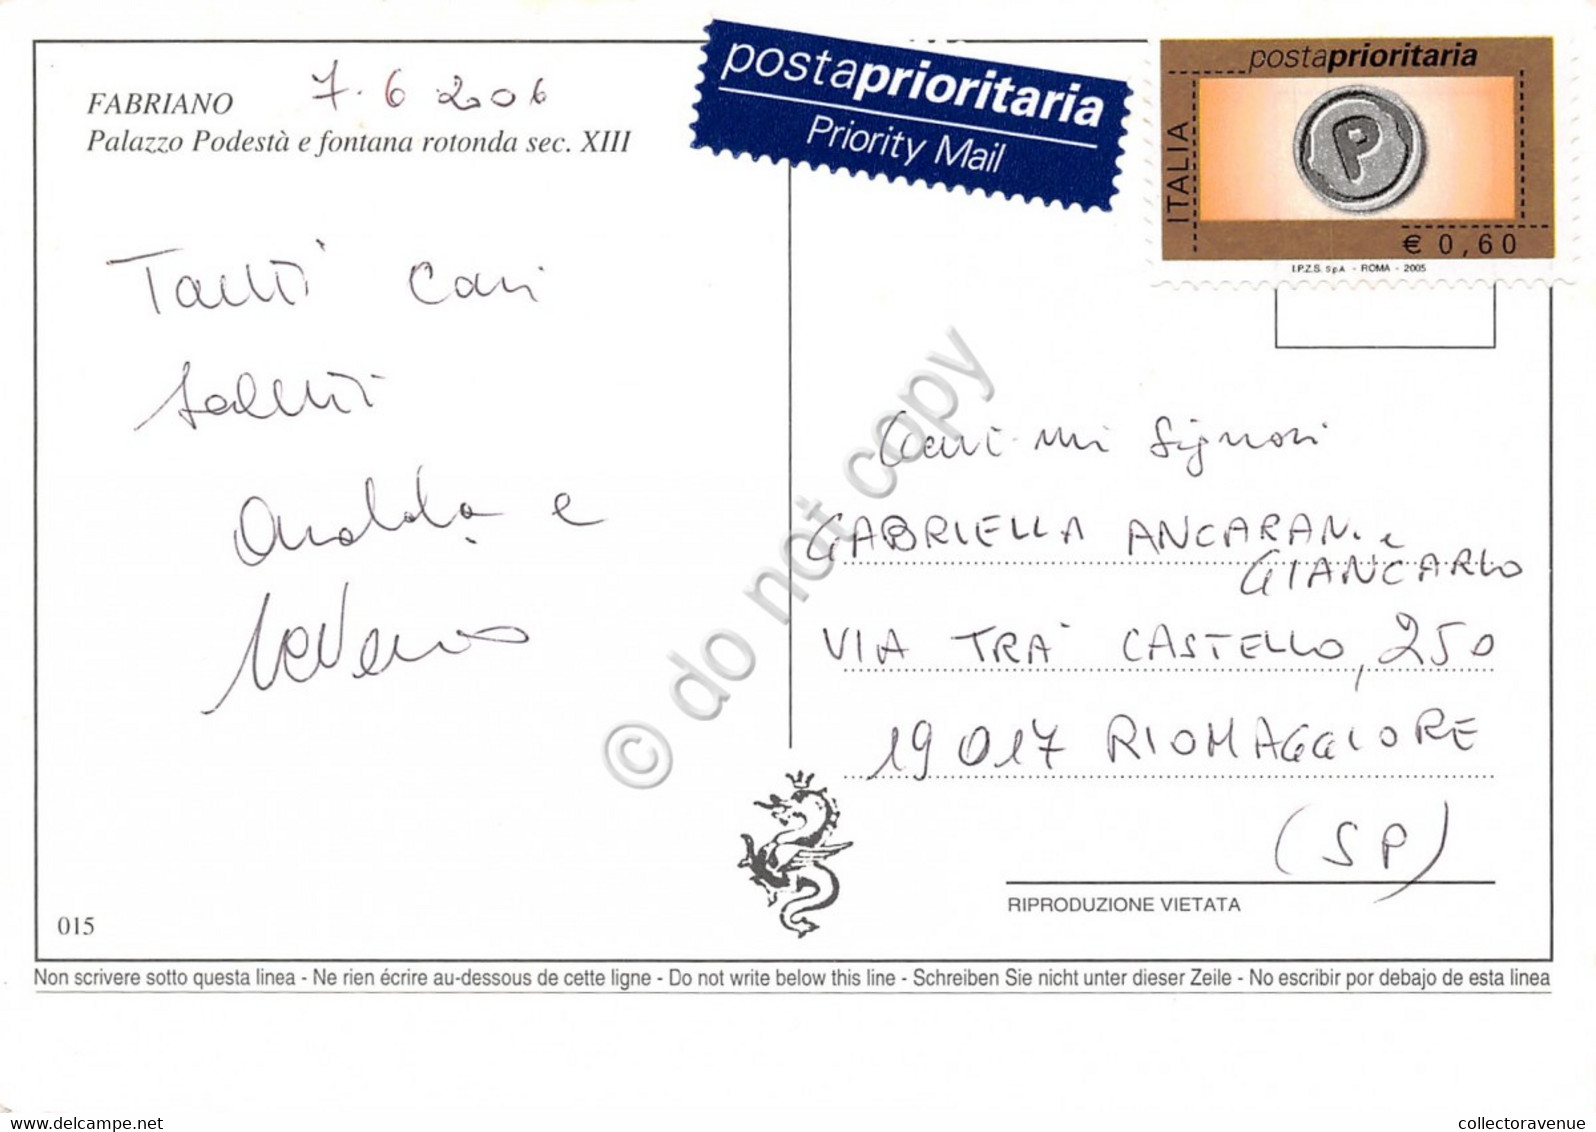 postaprioritaria
Priority Mail
postaprioritaria
ITALIA
€ 0,60
I.P.Z.S. SpA - ROMA - 2005
FABRIANO 7.6 2006
Palazzo Podestà e fontana rotonda sec. XIII
Tanti cari
saluti
e
Signori
GABRIELLA ANCARANI e
GIANCARLO
VIA TRA' CASTELLO, 250
19017 RIOMAGGIORE
(SP)
RIPRODUZIONE VIETATA
015
Non scrivere sotto questa linea - Ne rien écrire au-dessous de cette ligne - Do not write below this line - Schreiben Sie nicht unter dieser Zeile - No escribir por debajo de esta linea
© do not copy
delcampe.net
collectoravenue